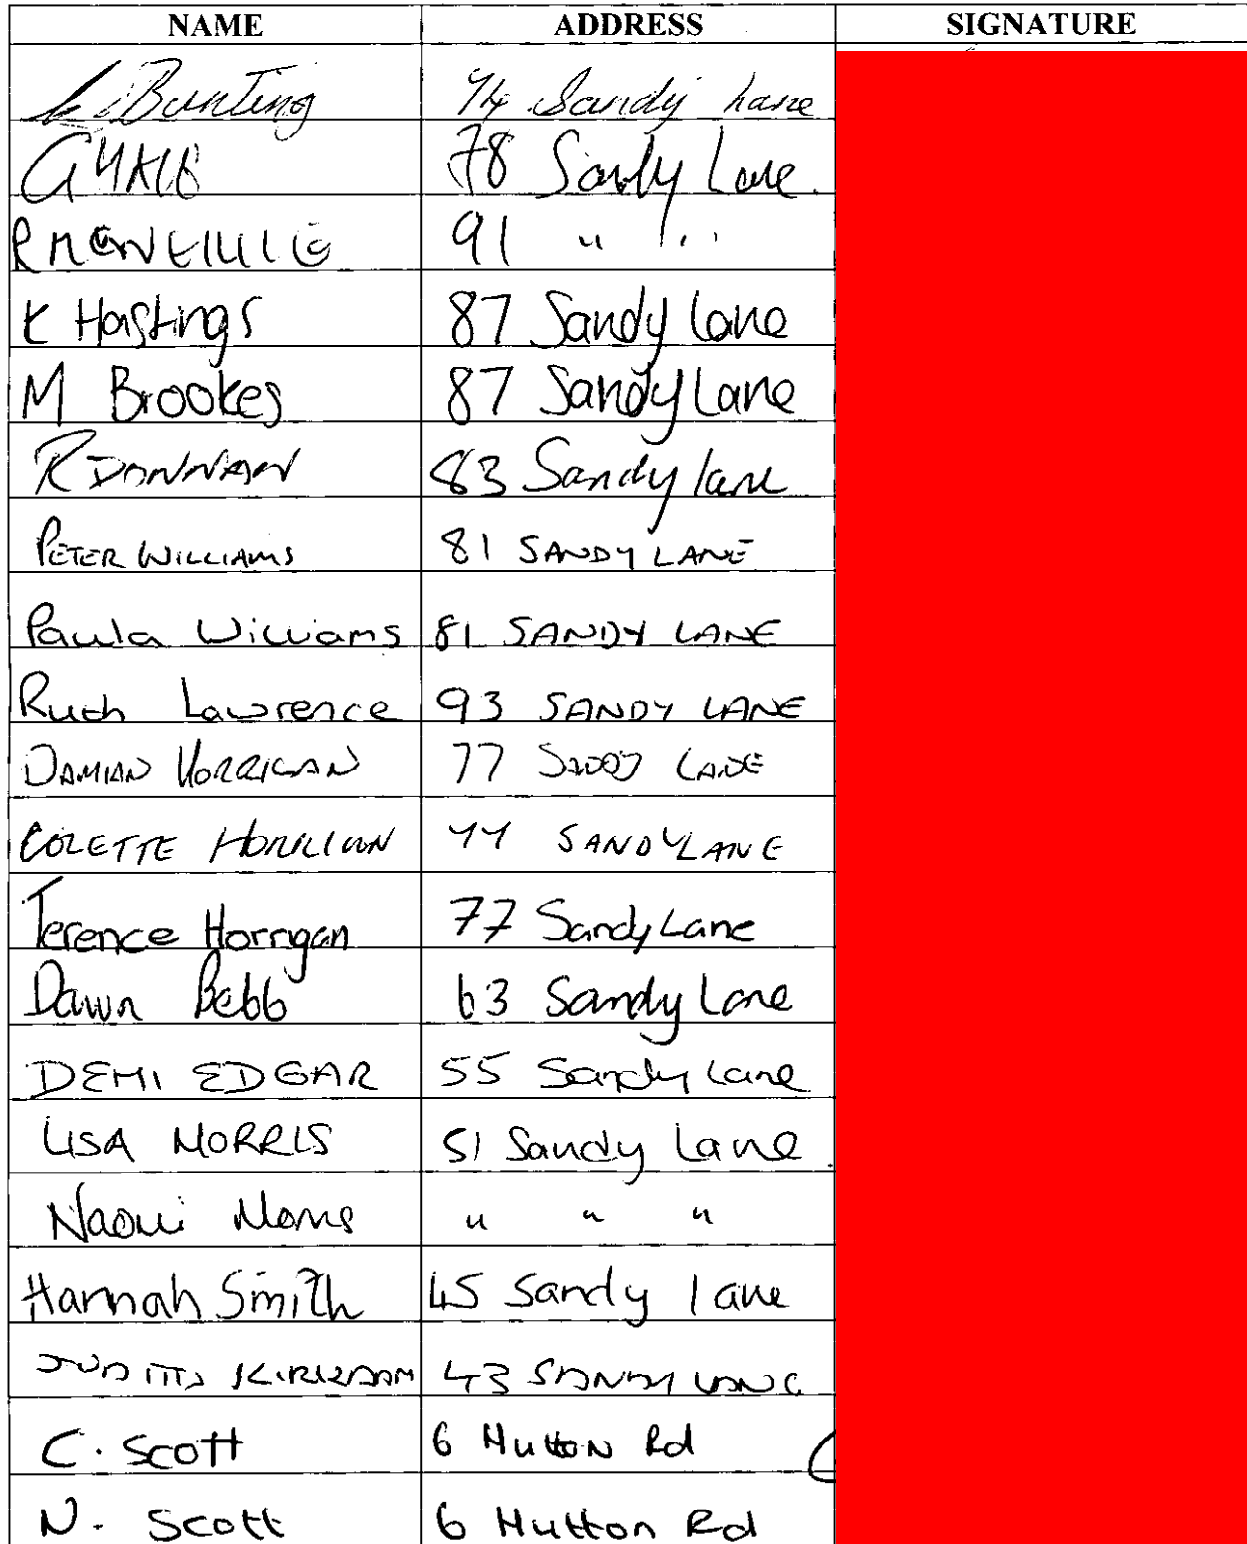 NAME ADDRESS SIGNATURE
Bunting 74 Sandy Lane
78 Sandy Lane.
91 " "
K Hastings 87 Sandy Lane
M Brookes 87 Sandy Lane
R DONNAN 83 Sandy lane
PETER WILLIAMS 81 SANDY LANE
Paula Williams 81 SANDY LANE
Ruth Lawrence 93 SANDY LANE
DAMIAN HORRIGAN 77 SANDY LANE
COLETTE HORRIGAN 77 SANDY LANE
Terence Horrigan 77 Sandy Lane
Dawn Bebb 63 Sandy Lane
DEMI EDGAR 55 Sandy Lane
LISA MORRIS 51 Sandy Lane.
Naomi Morris " " "
Hannah Smith 45 Sandy lane
JUDITH KIRKHAM 43 SANDY LANE
C. Scott 6 Hutton Rd
N. Scott 6 Hutton Rd